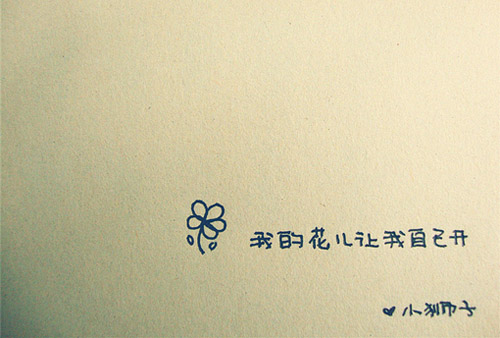 我的花儿让我自己开
♥小狮子